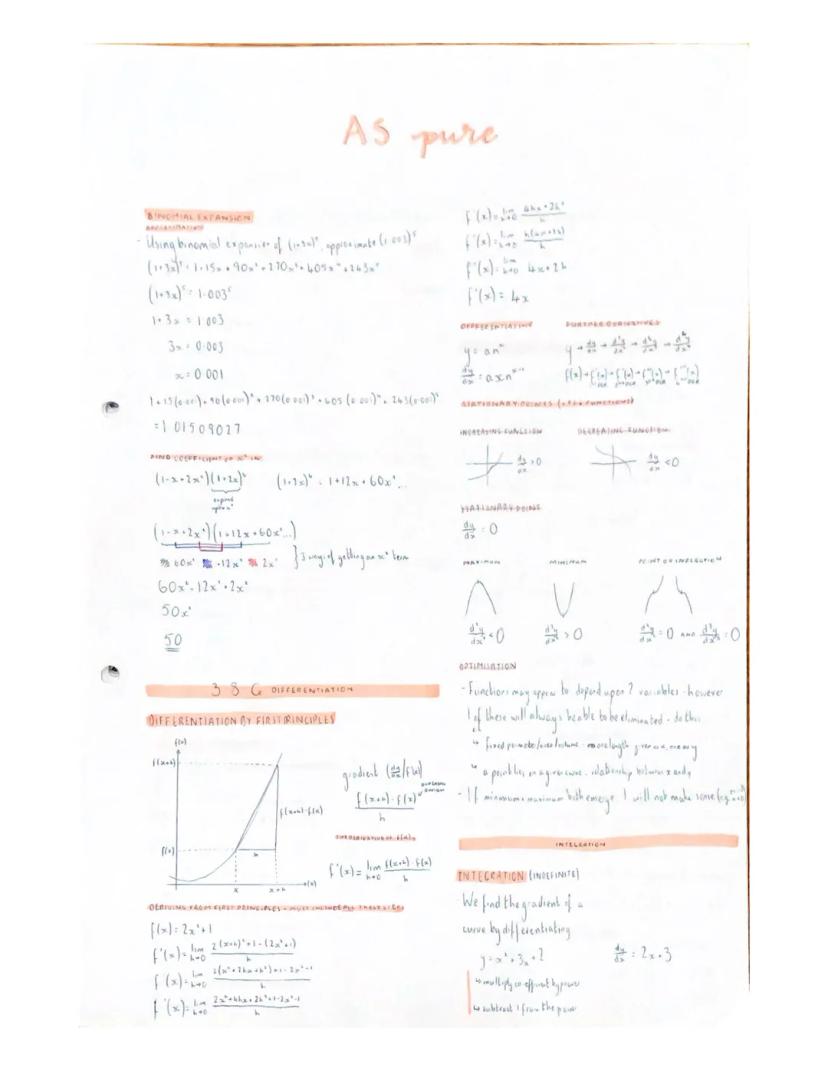 AS pure
BINOMIAL EXPANSION
APPROXIMATION
- Using binomial expansion of (1+3x)⁵, approximate (1.003)⁵
(1+3x)⁵ = 1+15x+90x²+270x³+405x⁴+243x⁵
(1+3x)⁵ = 1.003⁵
1+3x = 1.003
3x = 0.003
x = 0.001
1+15(0.001)+90(0.001)²+270(0.001)³+405(0.001)⁴+243(0.001)⁵
= 1.01509027
FIND COEFFICIENT OF x² IN
(1-x+2x²)(1+2x)⁶ (1+2x)⁶ = 1+12x+60x²...
expand
(1-x+2x²)(1+12x+60x²...)
60x² -12x² 2x² } 3 ways of getting an x² term
60x²-12x²+2x²
50x²
50
DIFFERENTIATION
DIFFERENTIATION BY FIRST PRINCIPLES
f(x)
f(x+h)
f(x+h)-f(x)
f(x)
h
x x+h
gradient (dy/dx / f'(x))
f(x+h)-f(x) / h
f'(x) = lim h→0 f(x+h)-f(x) / h
DERIVING FROM FIRST PRINCIPLES - MUST INCLUDE ALL THESE STEPS
f(x) = 2x²+1
f'(x) = lim h→0 2(x+h)²+1-(2x²+1) / h
f'(x) = lim h→0 2(x²+2hx+h²)+1-2x²-1 / h
f'(x) = lim h→0 2x²+4hx+2h²+1-2x²-1 / h
f'(x) = lim h→0 4hx+2h² / h
f'(x) = lim h→0 h(4x+2h) / h
f'(x) = lim h→0 4x+2h
f'(x) = 4x
DIFFERENTIATING FURTHER DERIVATIVES
STATIONARY POINTS
INCREASING FUNCTION DECREASING FUNCTION
dy/dx >0 dy/dx <0
STATIONARY POINT
dy/dx = 0
MAXIMUM MINIMUM POINT OF INFLECTION
d²y/dx² <0 d²y/dx² >0 d²y/dx² = 0 AND d³y/dx³ = 0
OPTIMISATION
- Functions may appear to depend upon 2 variables - however
1 of these will always be able to be eliminated - do this
↳ a point lies on a given curve - relationship between x and y
- If minimum + maximum both emerge, 1 will not make sense
INTEGRATION
INTEGRATION (INDEFINITE)
We find the gradient of a
curve by differentiating
y = x²+3x+2 dy/dx = 2x+3
↳ multiply coefficient by power
↳ subtract 1 from the power